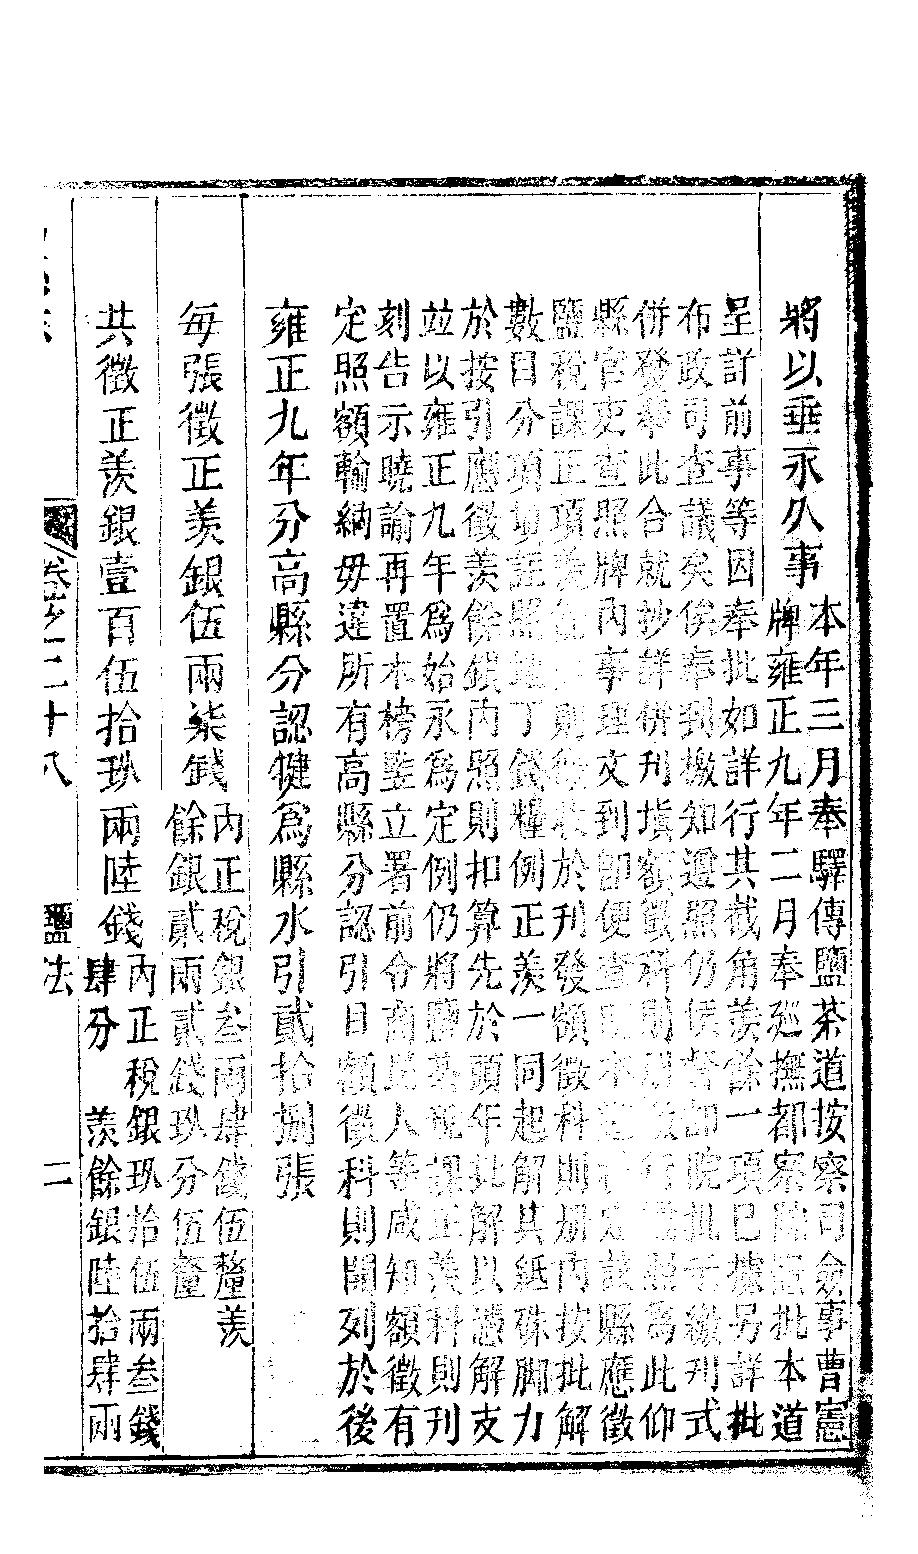 將以垂永久事
本年三月奉驛傳鹽茶道按察司僉事曹憲
牌雍正九年二月奉廵撫都察院憲批本道
呈詳前事等因奉批如詳行其截角羨餘一項已據另詳批
布政司查議矣俟奉到檄知遵照仍候督部院批示繳刊式
併發奉此合就抄詳併刊填額徵科則爲此仰
縣官吏查照牌內事理文到卽便查該縣應徵
鹽稅課正項羨則於刊發額徵科則册內按批解
數目分項填註照地丁錢糧例正羨一同起解其紙硃脚力
於按引應徵羨餘銀內照則扣算先於頭年批解以憑解支
竝以雍正九年爲始永爲定例仍將鹽課正羨科則刊
刻告示曉諭再置木榜豎立署前令商民人等咸知額徵有
定照額輸納毋違所有高縣分認引目額徵科則開列於後
雍正九年分高縣分認犍爲縣水引貳拾捌張
每張徵正羨銀伍兩柒錢
內正稅銀叁兩肆錢伍釐羨
餘銀貳兩貳錢玖分伍釐
共徵正羨銀壹百伍拾玖兩陸錢
內正稅銀玖拾伍兩叁錢
肆分 羨餘銀陸拾肆兩
卷之二十八 鹽法 二